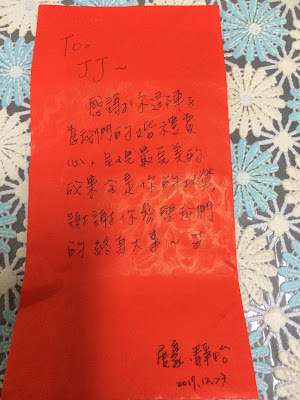 To:
JJ~
感謝你這陣子
為我們的婚禮費
心，呈現最完美的
成果全是你的功勞
謝謝你參與我們
的終身大事~
展豪 靜怡
2017.12.23